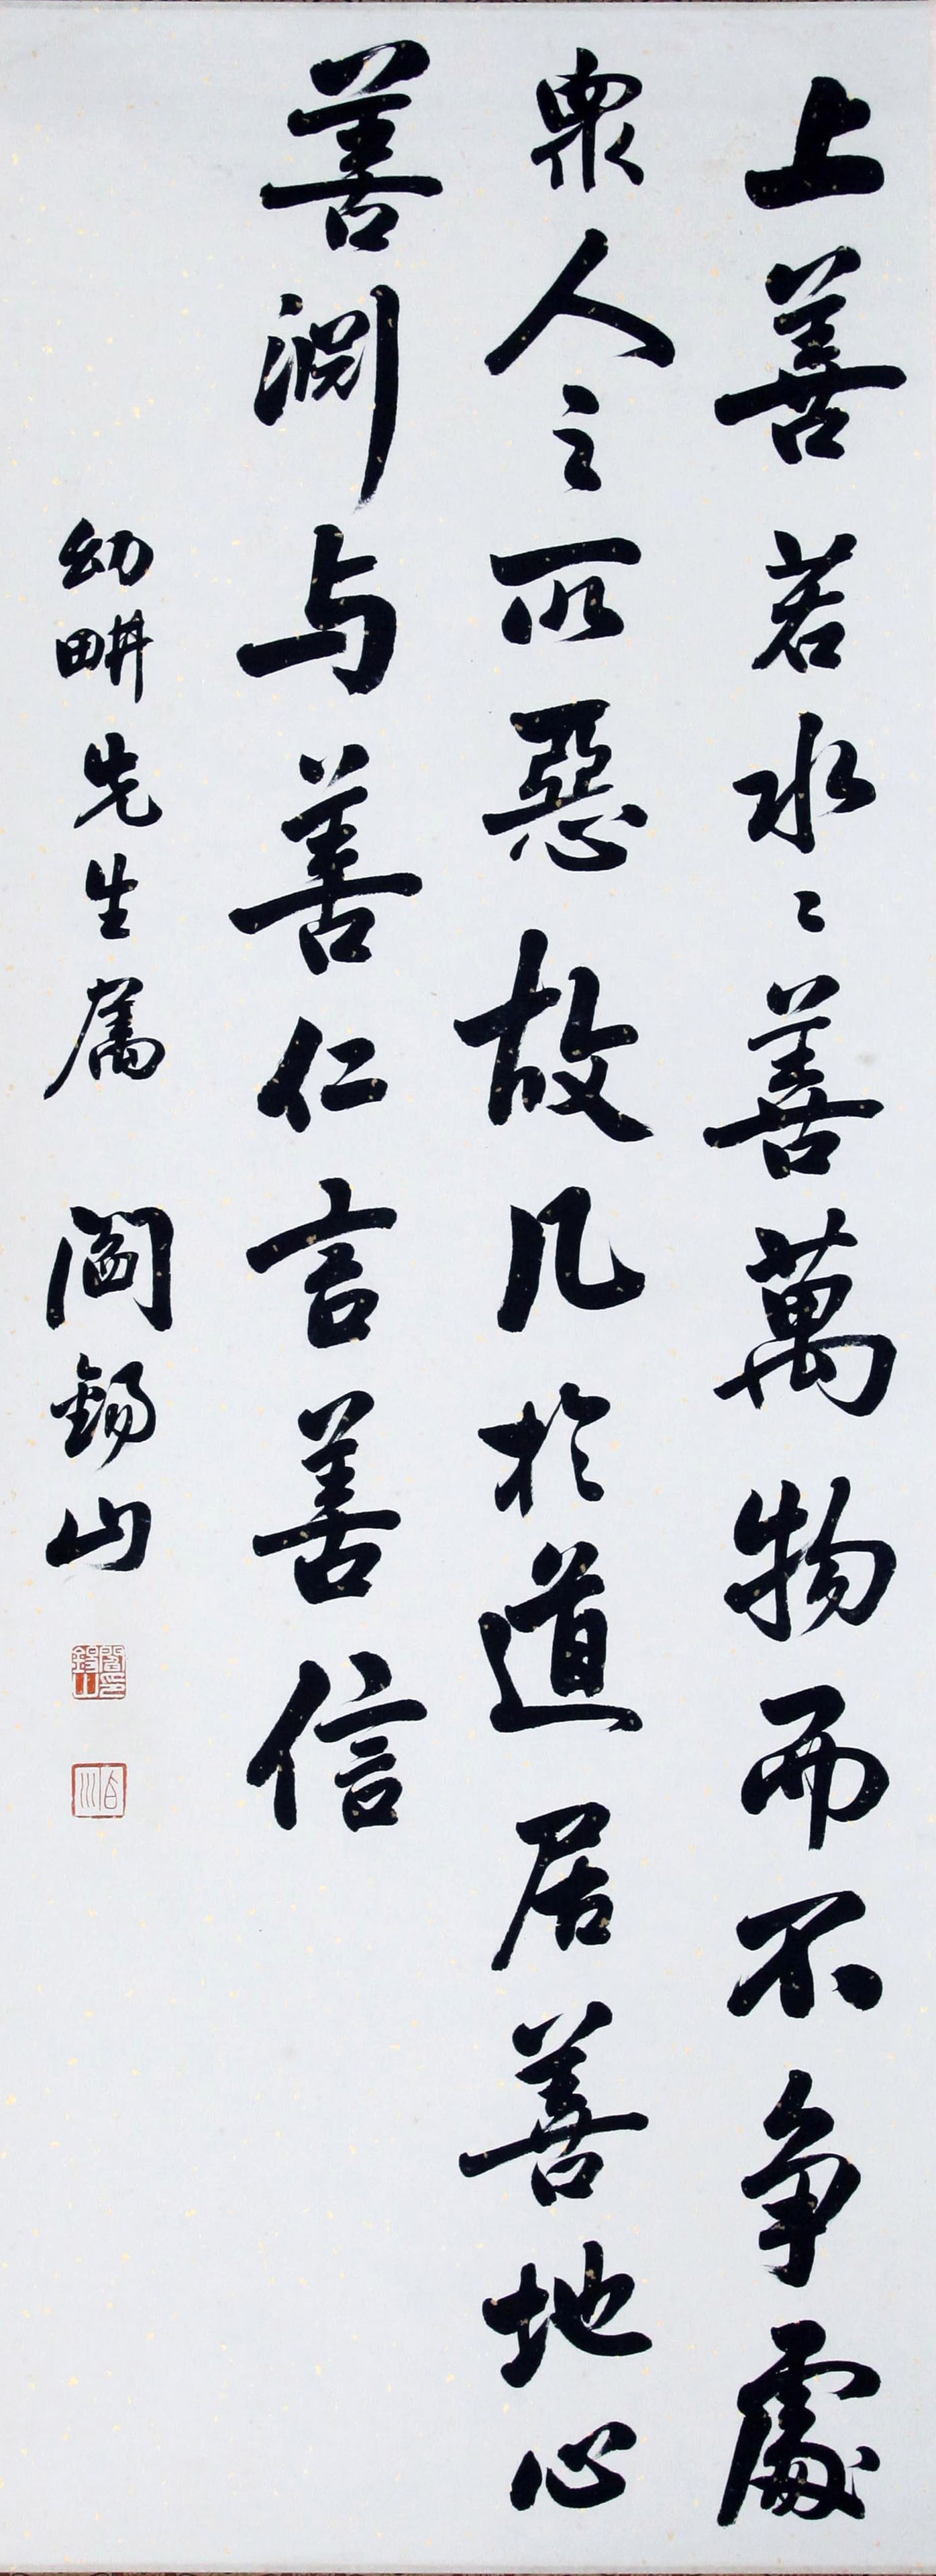 上善若水〻善萬物而不争處
衆人之所惡故凡於道居善地心
善渊与善仁言善信
幼畊先生屬 閻錫山
閻錫山印
百川